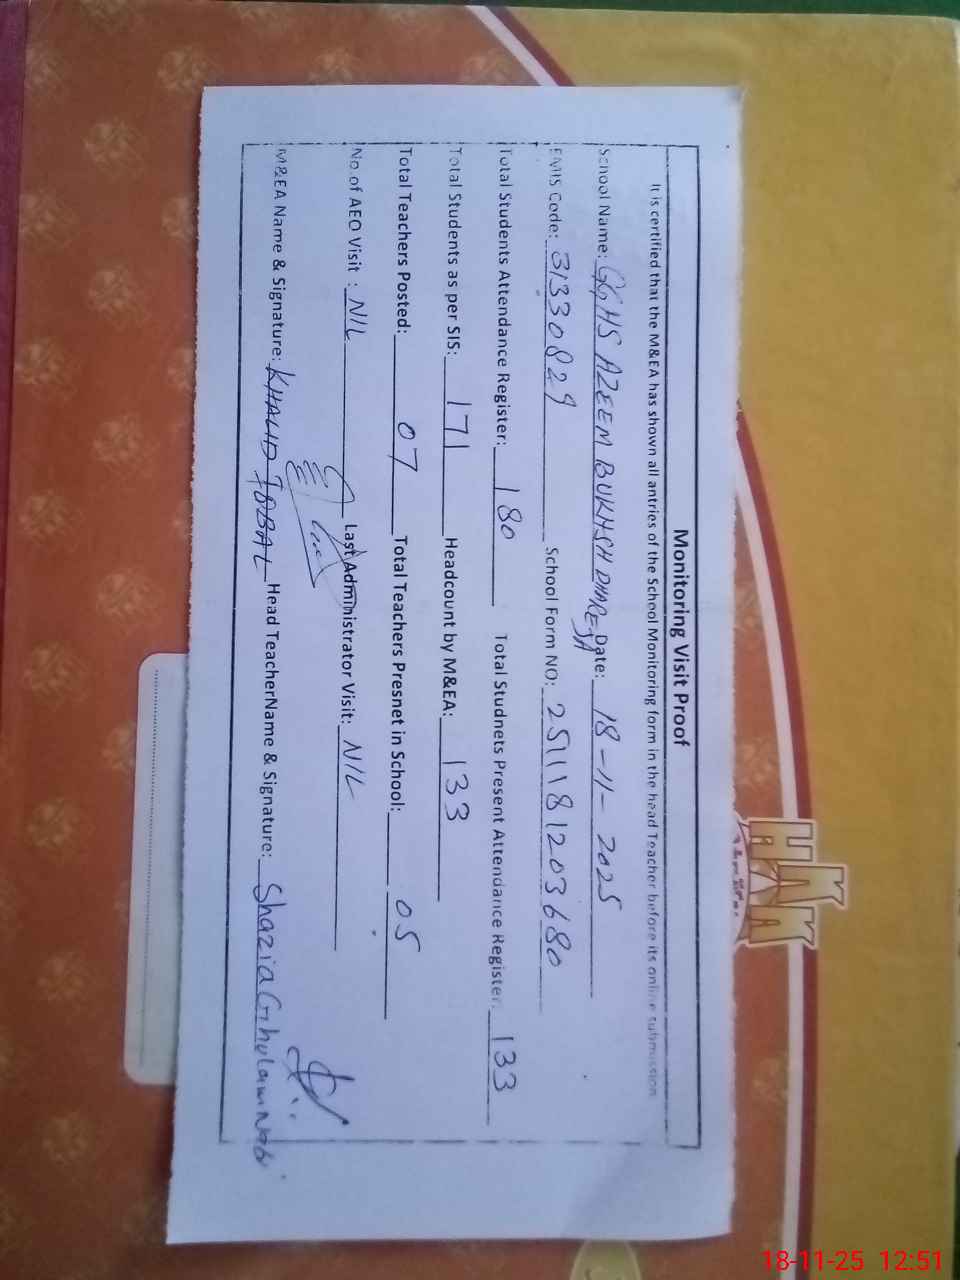 Monitoring Visit Proof
It is certified that the M&EA has shown all antries of the School Monitoring form in the head Teacher before its online submission
School Name: GGHS AZEEM BUKHSH DHAREJA Date: 18-11-2025
EMIS Code: 31330829 School Form NO: 2511181203680
Total Students Attendance Register: 180 Total Studnets Present Attendance Register: 133
Total Students as per SIS: 171 Headcount by M&EA: 133
Total Teachers Posted: 07 Total Teachers Presnet in School: 05
No of AEO Visit : NIL Last Administrator Visit: NIL
M&EA Name & Signature: KHALID IQBAL Head TeacherName & Signature: Shazia Ghulam Nabi
18-11-25 12:51